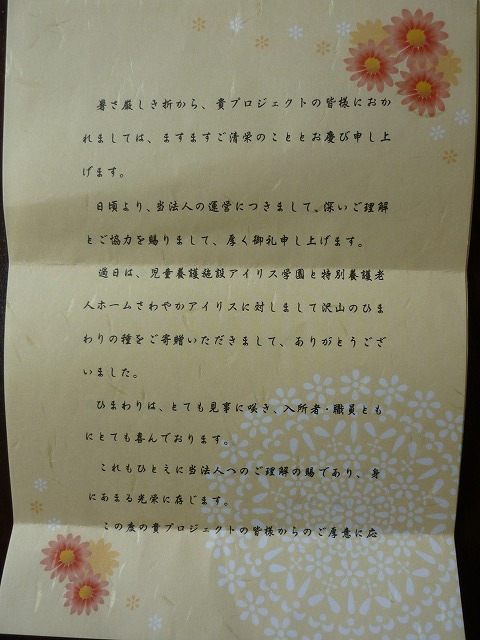 暑さ厳しき折から、貴プロジェクトの皆様におか
れましては、ますますご清栄のこととお慶び申し上
げます。
日頃より、当法人の運営につきまして、深いご理解
とご協力を賜りまして、厚く御礼申し上げます。
過日は、児童養護施設アイリス学園と特別養護老
人ホームさわやかアイリスに対しまして沢山のひま
わりの種をご寄贈いただきまして、ありがとうござ
いました。
ひまわりは、とても見事に咲き、入所者・職員とも
にとても喜んでおります。
これもひとえに当法人へのご理解の賜であり、身
にあまる光栄に存じます。
この度の貴プロジェクトの皆様からのご厚意に応